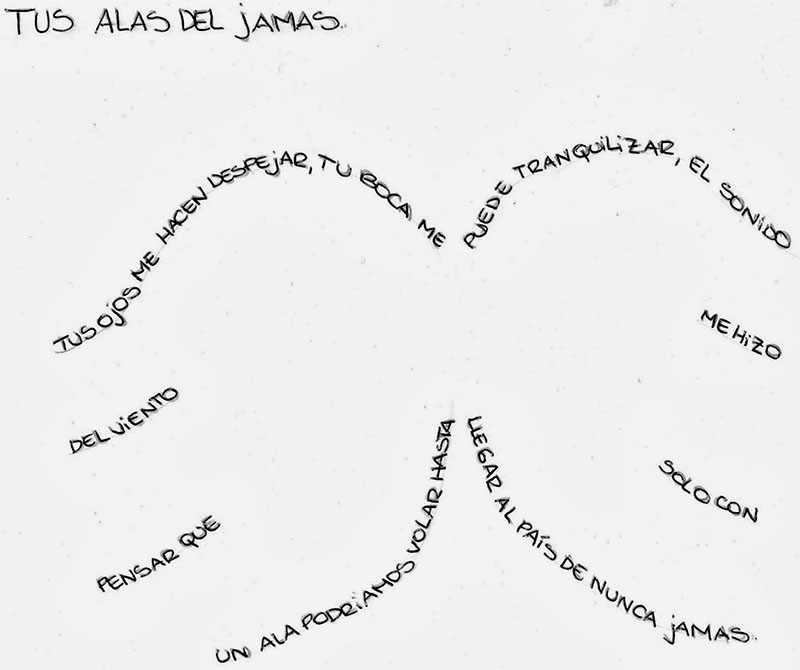 TUS ALAS DEL JAMAS.
TUS OJOS ME HACEN DESPEJAR, TU BOCA ME
PUEDE TRANQUILIZAR, EL SONIDO
DEL VIENTO
ME HIZO
PENSAR QUE
SOLO CON
UN ALA PODRIAMOS VOLAR HASTA
LLEGAR AL PAÍS DE NUNCA JAMAS.